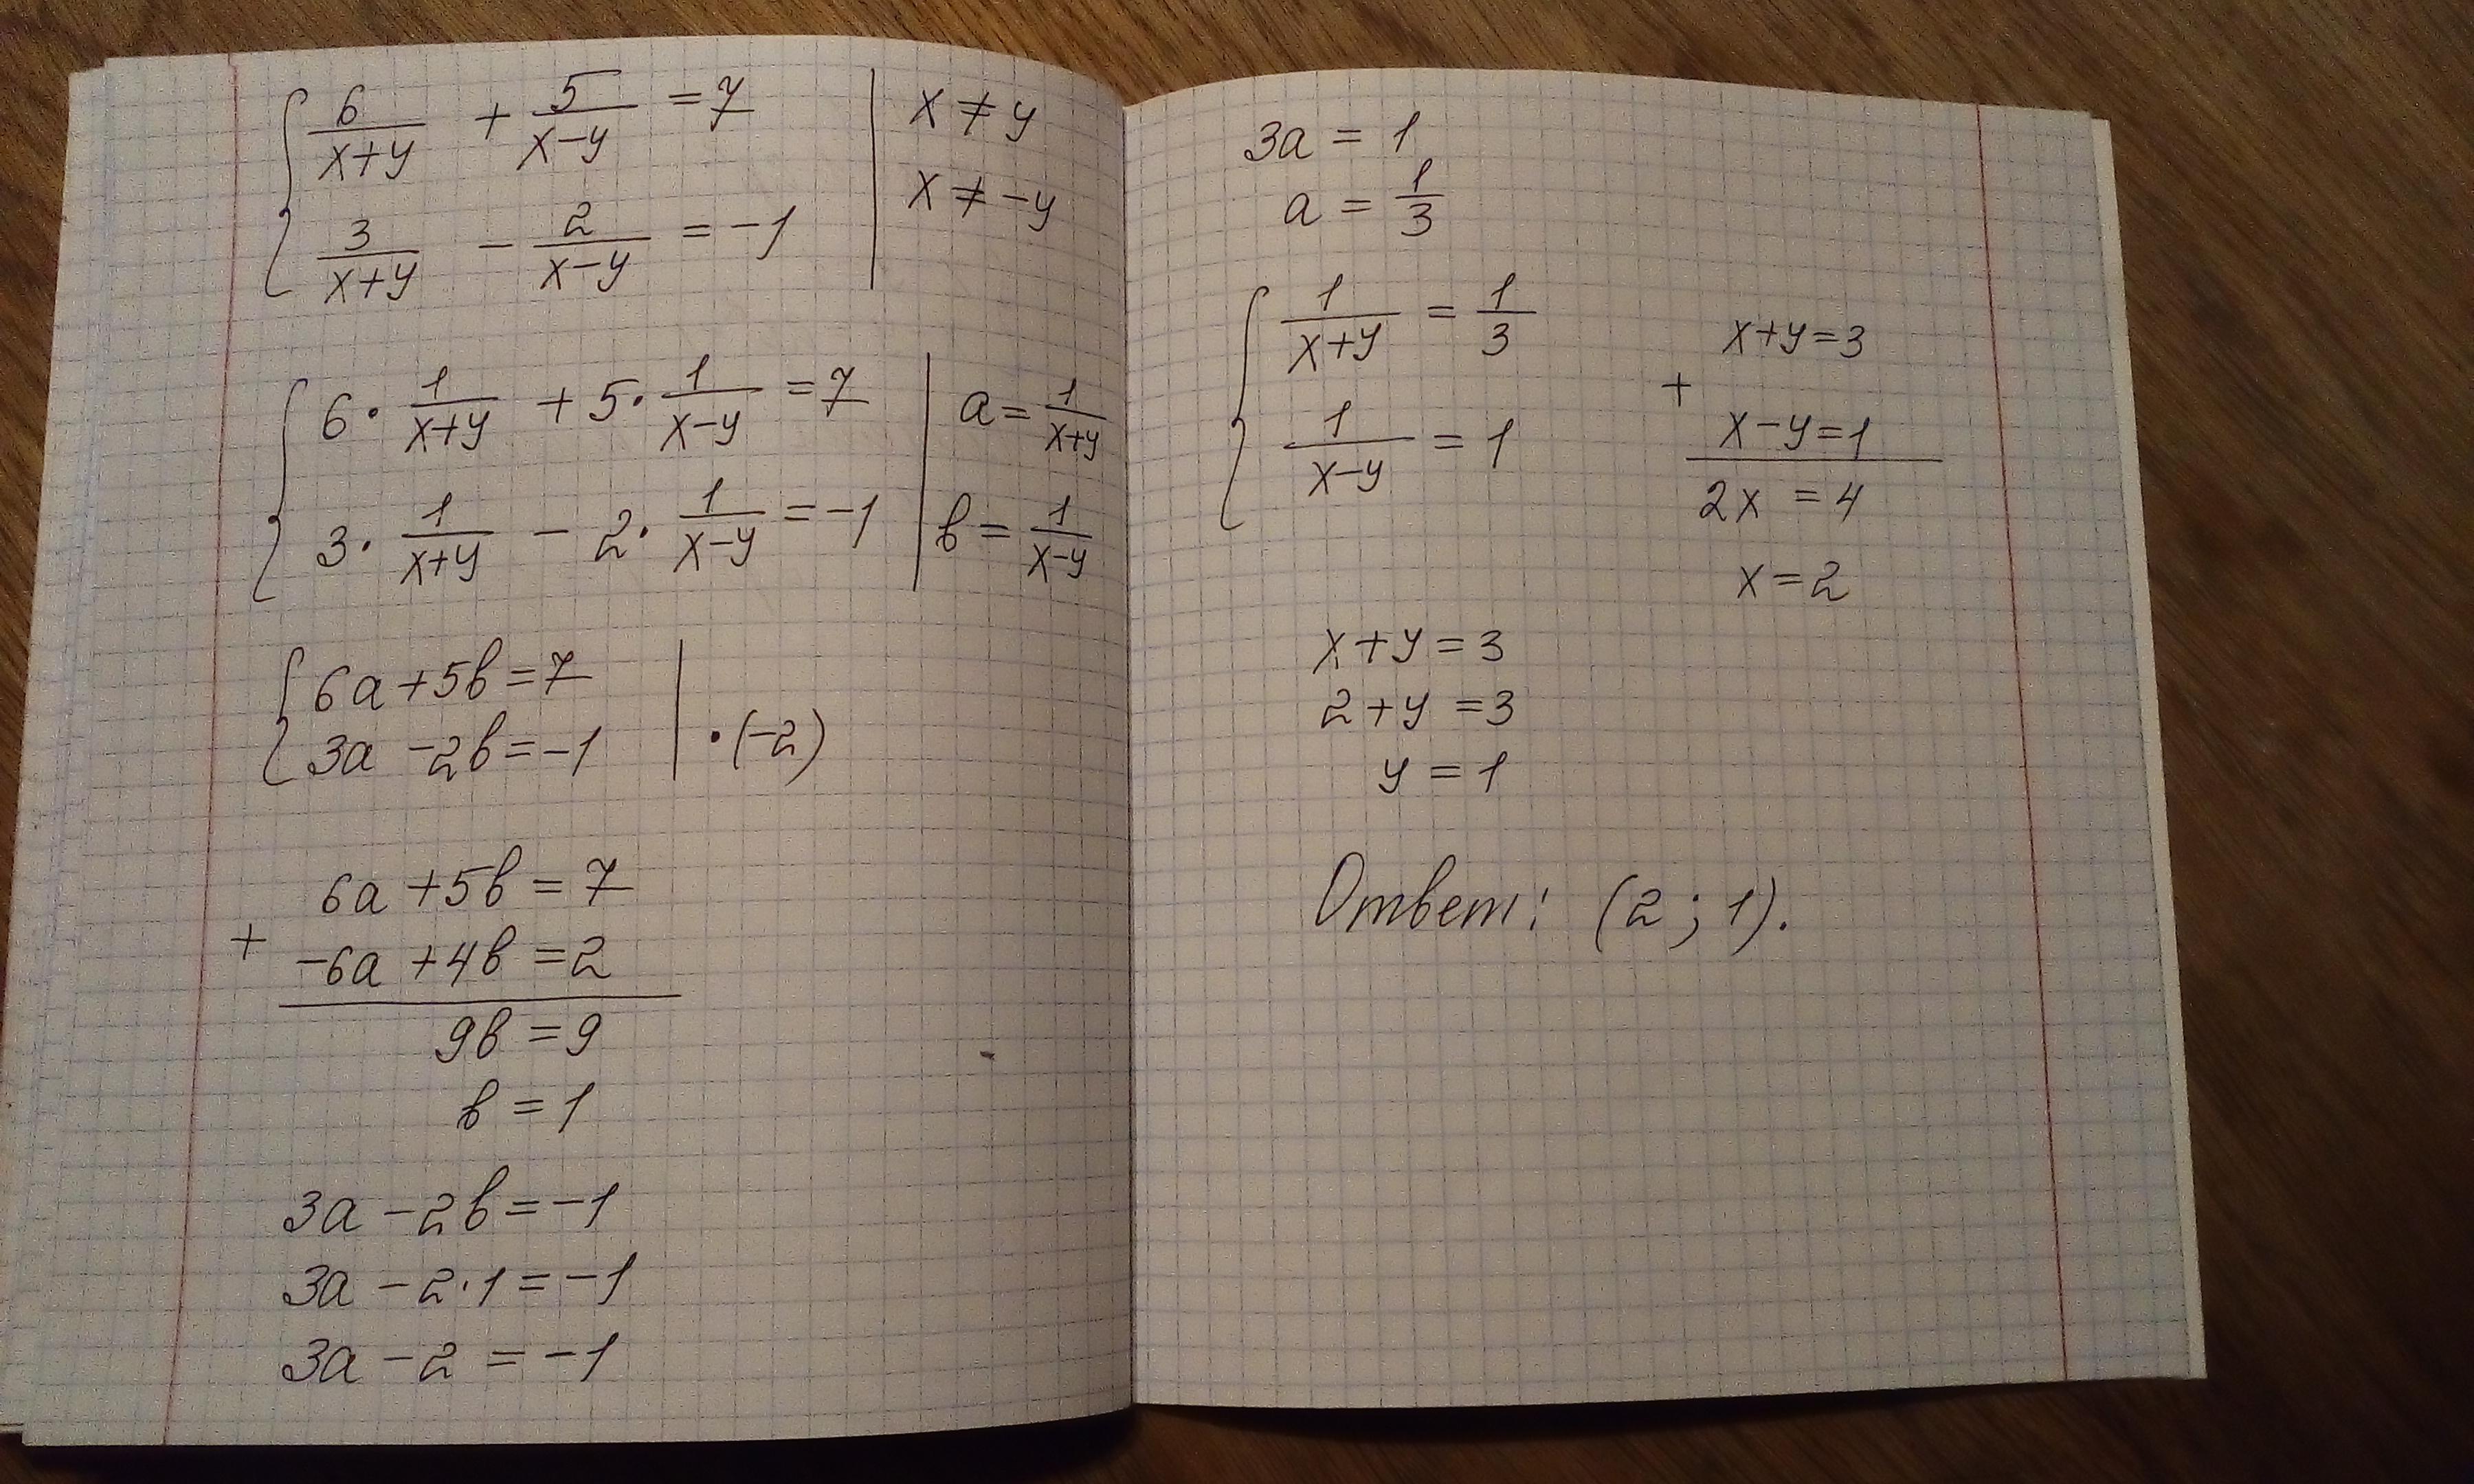 6/(x+y) + 5/(x-y) = 7 | x ≠ y
3/(x+y) - 2/(x-y) = -1 | x ≠ -y
6 · 1/(x+y) + 5 · 1/(x-y) = 7 | a = 1/(x+y)
3 · 1/(x+y) - 2 · 1/(x-y) = -1 | b = 1/(x-y)
6a + 5b = 7
3a - 2b = -1 | · (-2)
6a + 5b = 7
+
-6a + 4b = 2
9b = 9
b = 1
3a - 2b = -1
3a - 2 · 1 = -1
3a - 2 = -1
3a = 1
a = 1/3
1/(x+y) = 1/3
1/(x-y) = 1
x + y = 3
+
x - y = 1
2x = 4
x = 2
x + y = 3
2 + y = 3
y = 1
Ответ: (2; 1).